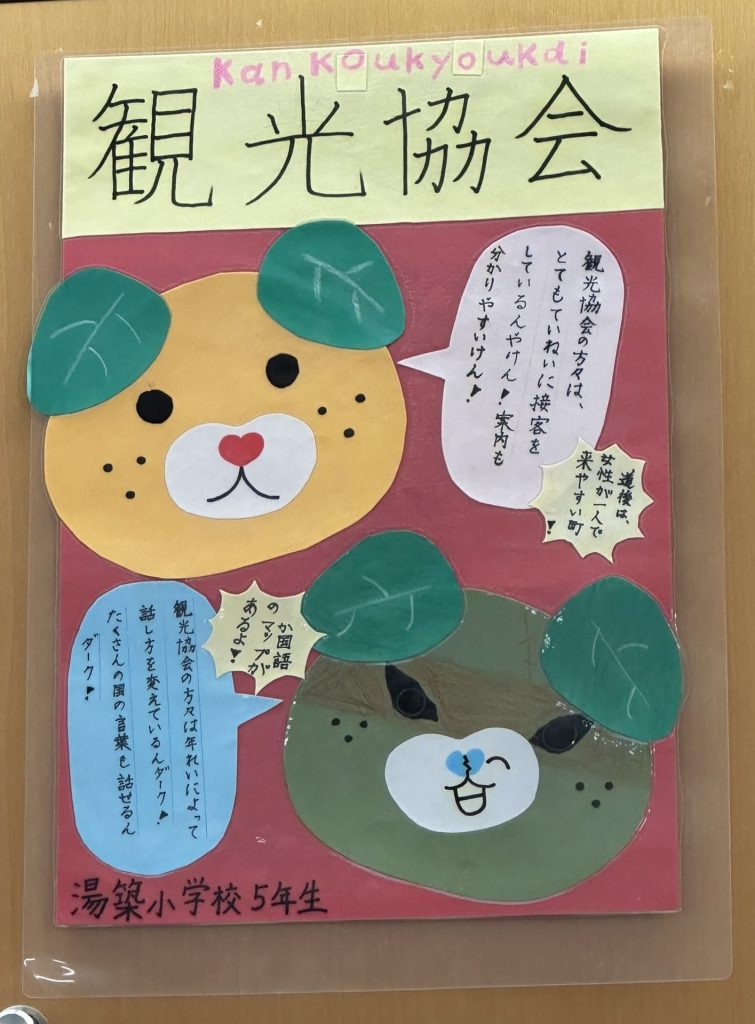 Kankoukyoukai
観光協会
観光協会の方々は、
とてもていねいに接客を
しているんやけん!案内も
分かりやすいけん!
道後は、
女性が一人で
来やすい町
!
か国語
のマップが
あるよ!
観光協会の方々は年れいによって
話し方を変えているんダーク!
たくさんの国の言葉も話せるん
ダーク!
湯築小学校5年生